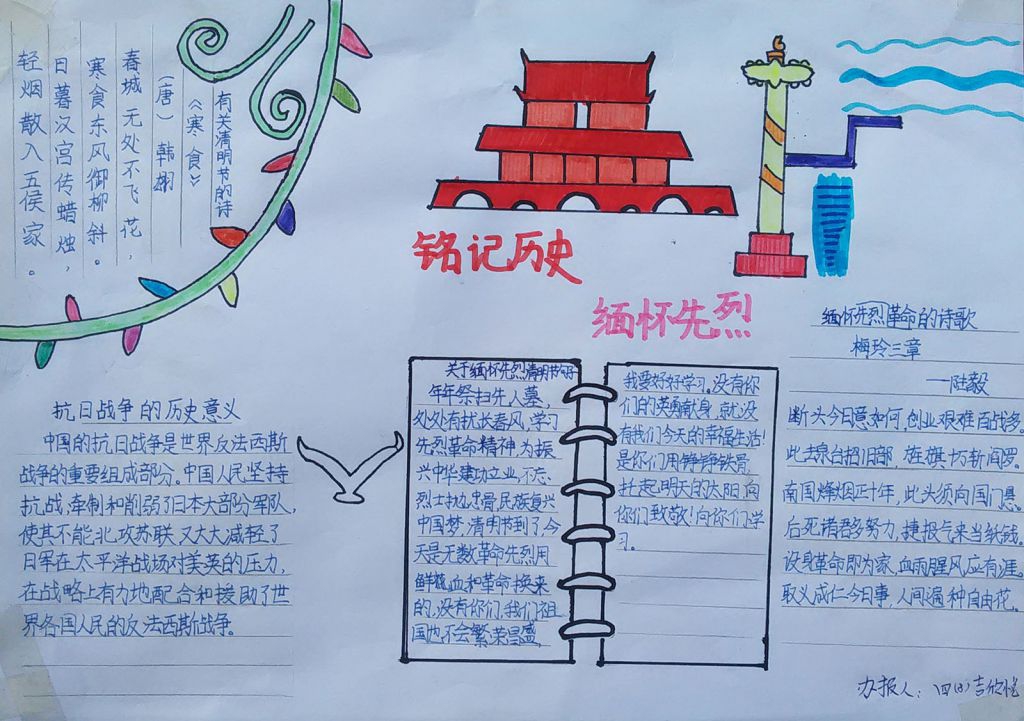 有关清明节的诗
《寒食》
(唐) 韩翃
春城无处不飞花,
寒食东风御柳斜。
日暮汉宫传蜡烛,
轻烟散入五侯家。
铭记历史
缅怀先烈
抗日战争的历史意义
中国的抗日战争是世界反法西斯
战争的重要组成部分。中国人民坚持
抗战,牵制和削弱了日本大部分军队,
使其不能北攻苏联,又大大减轻了
日军在太平洋战场对美英的压力,
在战略上有力地配合和援助了世
界各国人民的反法西斯战争。
关于缅怀先烈清明节的
年年祭扫先人墓,
处处有扰长春风,学习
先烈革命精神,为振
兴中华建功立业,不忘
烈士忠骨,民族复兴
中国梦,清明节到了,今
天是无数革命先烈用
鲜血和革命换来
的,没有你们,我们祖
国也不会繁荣昌盛,
我要好好学习。没有你
们的英勇献身,就没
有我们今天的幸福生活!
是你们用铮铮铁骨
托起明天的太阳,向
你们致敬!向你们学
习。
缅怀先烈革命的诗歌
梅玲三章
—陆毅
断头今日意如何,创业艰难百战多。
此去泉台招旧部,旌旗十万斩阎罗。
南国烽烟正十年,此头须向国门悬。
后死诸君多努力,捷报气来当纸钱。
设身革命即为家,血雨腥风应有涯。
取义成仁今日事,人间遍种自由花。
办报人:四(8)吉欣